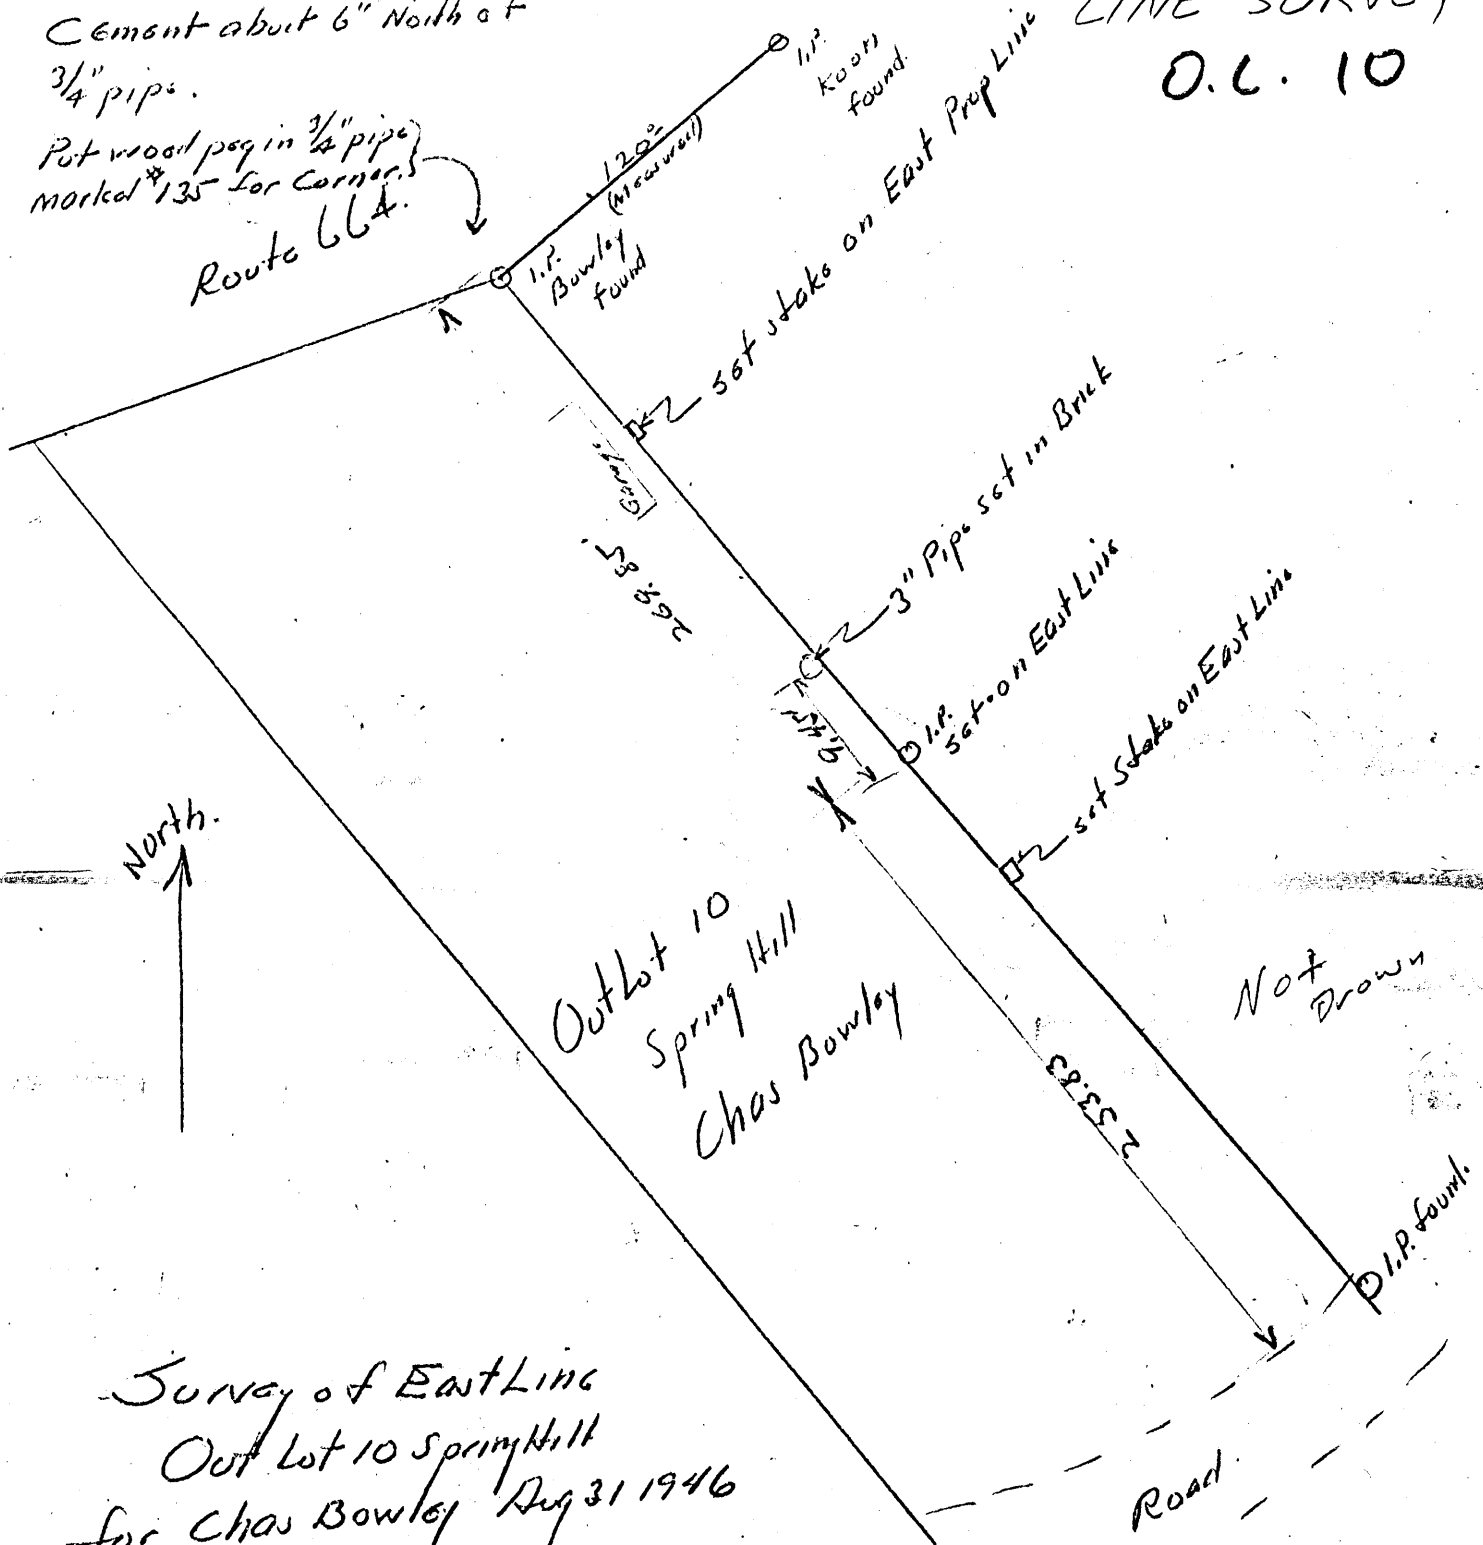 Cement about 6" North of
3/4" pipe.
Put wood peg in 3/4" pipe
marked #135 for Corner.
Route 664.
LINE SURVEY
O.L. 10
I.P.
Koon
found.
120°°
(Measured)
I.P.
Bowley
found
set stake on East Prop Line
3" Pipe set in Brick
I.P.
set on East Line
set Stake on East Line
9.45'
253.83
North.
OutLot 10
Spring Hill
Chas Bowley
Not
Drawn
I.P. found.
Road.
Survey of East Line
Out Lot 10 Spring Hill
for Chas Bowley Aug 31 1946